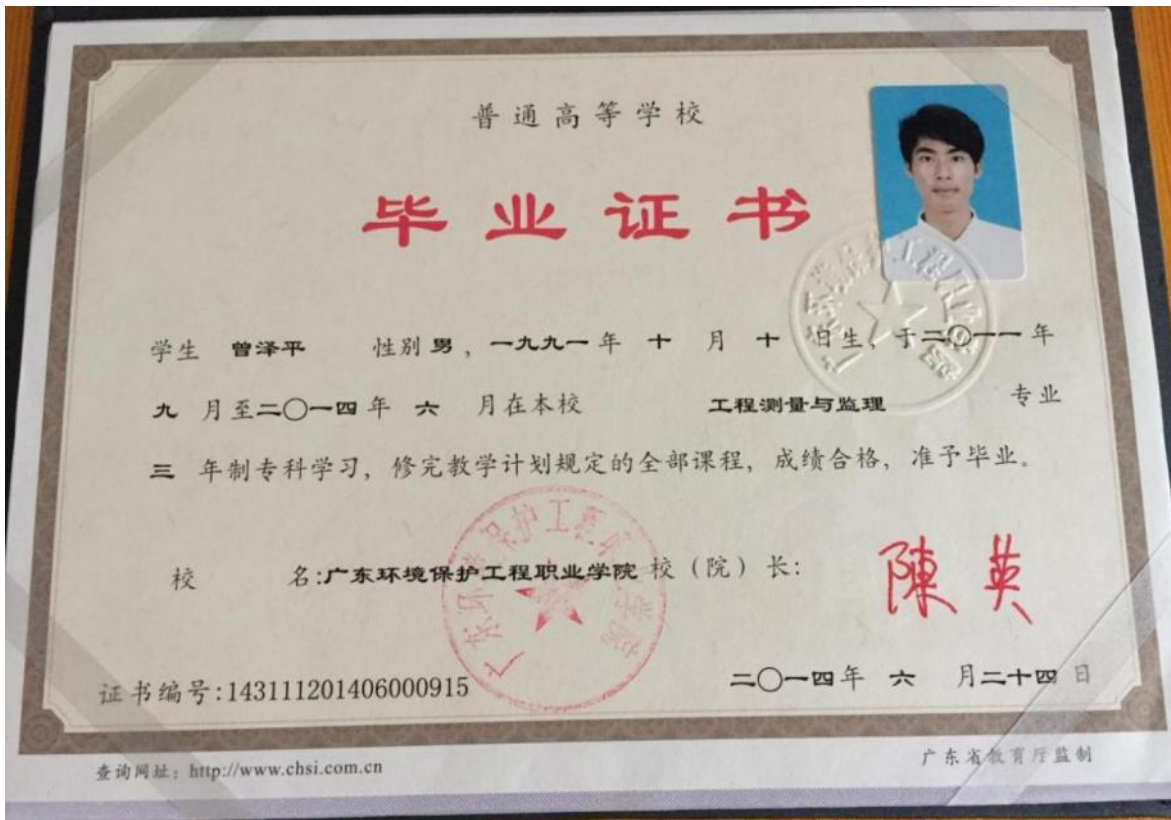 普通高等学校
毕业证书
学生 曾泽平 性别 男，一九九一年 十 月 十 日生，于二〇一一年
九 月至二〇一四年 六 月在本校 工程测量与监理 专业
三 年制专科学习，修完教学计划规定的全部课程，成绩合格，准予毕业。
校 名:广东环境保护工程职业学院 校（院）长:
陳英
广东环境保护工程职业学院
广东环境保护工程职业学院
证书编号:143111201406000915
二〇一四年 六 月二十四日
查询网址：http://www.chsi.com.cn
广东省教育厅监制